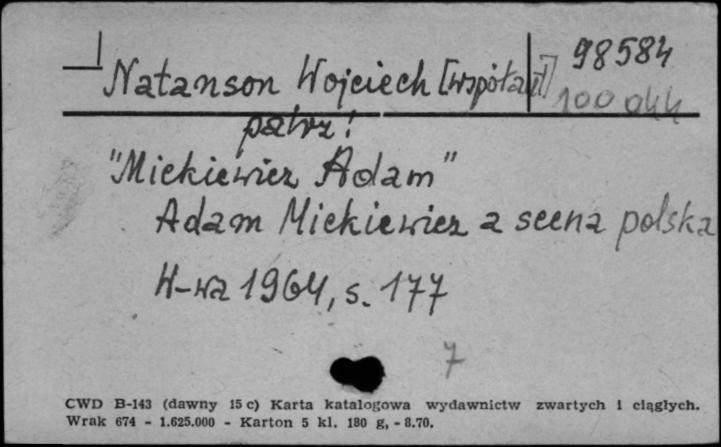 98584
Natanson Wojciech [współaut]
100 044
patrz!
"Mickiewicz Adam"
Adam Mickiewicz a scena polska
W-wa 1964, s. 177
7
CWD B-143 (dawny 15 c) Karta katalogowa wydawnictw zwartych i ciągłych.
Wrak 674 - 1.625.000 - Karton 5 kl. 180 g, - 8.70.